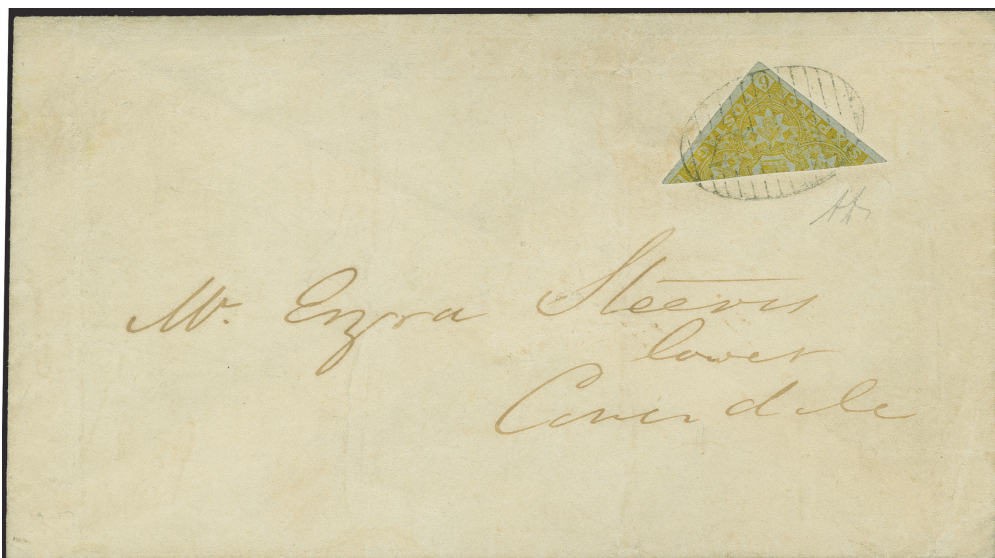 Mr. Ezra Steeves
lower
Coverdale